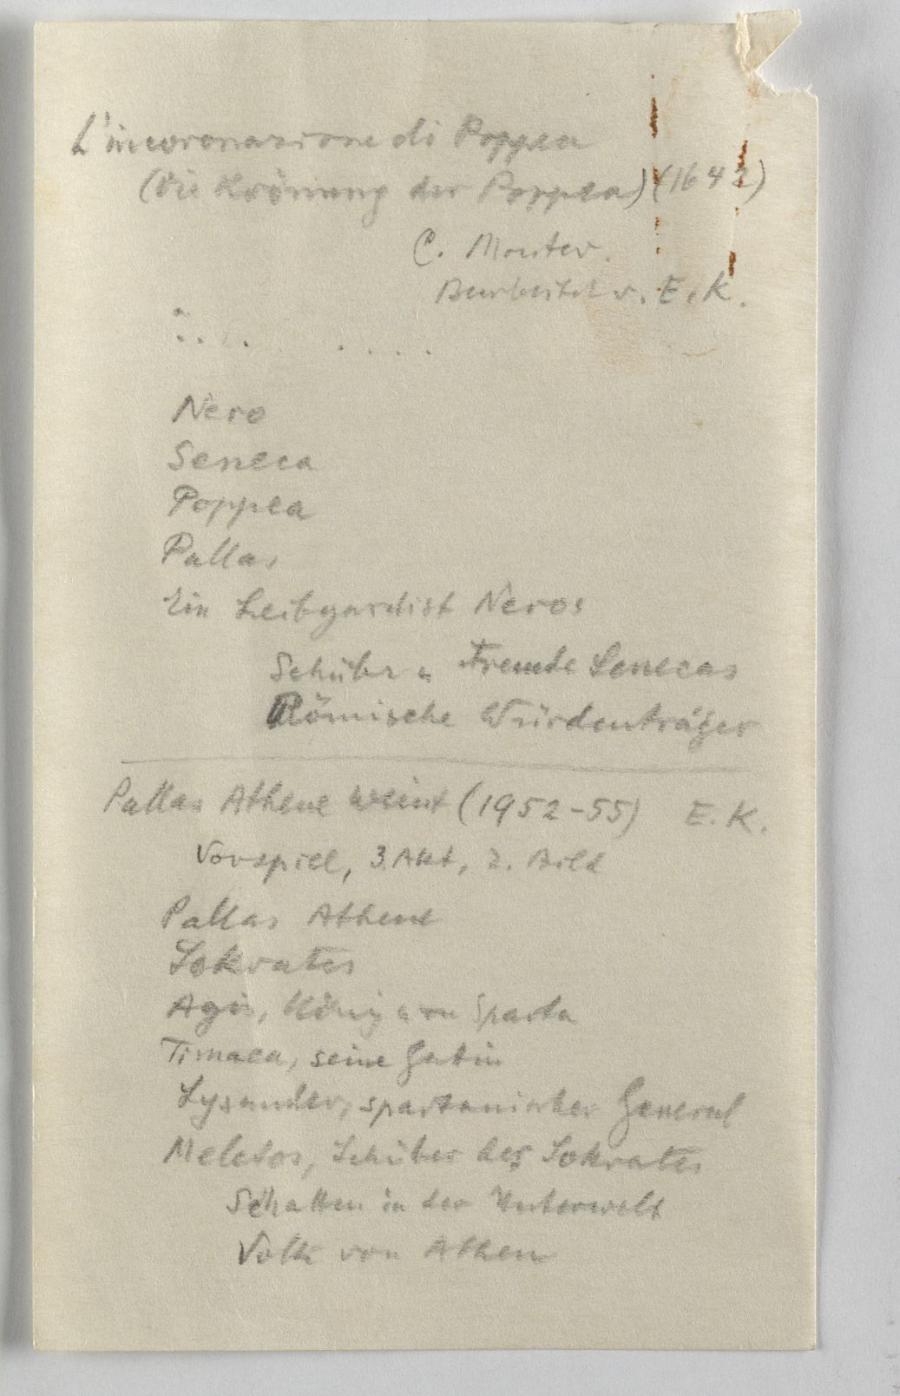 L'incoronazione di Poppea
(Die Krönung der Poppea) (1642)
C. Montev.
Bearbeitet v. E. K.
Nero
Seneca
Poppea
Pallas
Ein Leibgardist Neros
Schüler u Freunde Senecas
Römische Würdenträger
Pallas Athene weint (1952-55) E. K.
Vorspiel, 3. Akt, 2. Bild
Pallas Athene
Sokrates
Agis, König von Sparta
Timaea, seine Gattin
Lysander, spartanischer General
Meletos, Schüler des Sokrates
Schatten in der Unterwelt
Volk von Athen